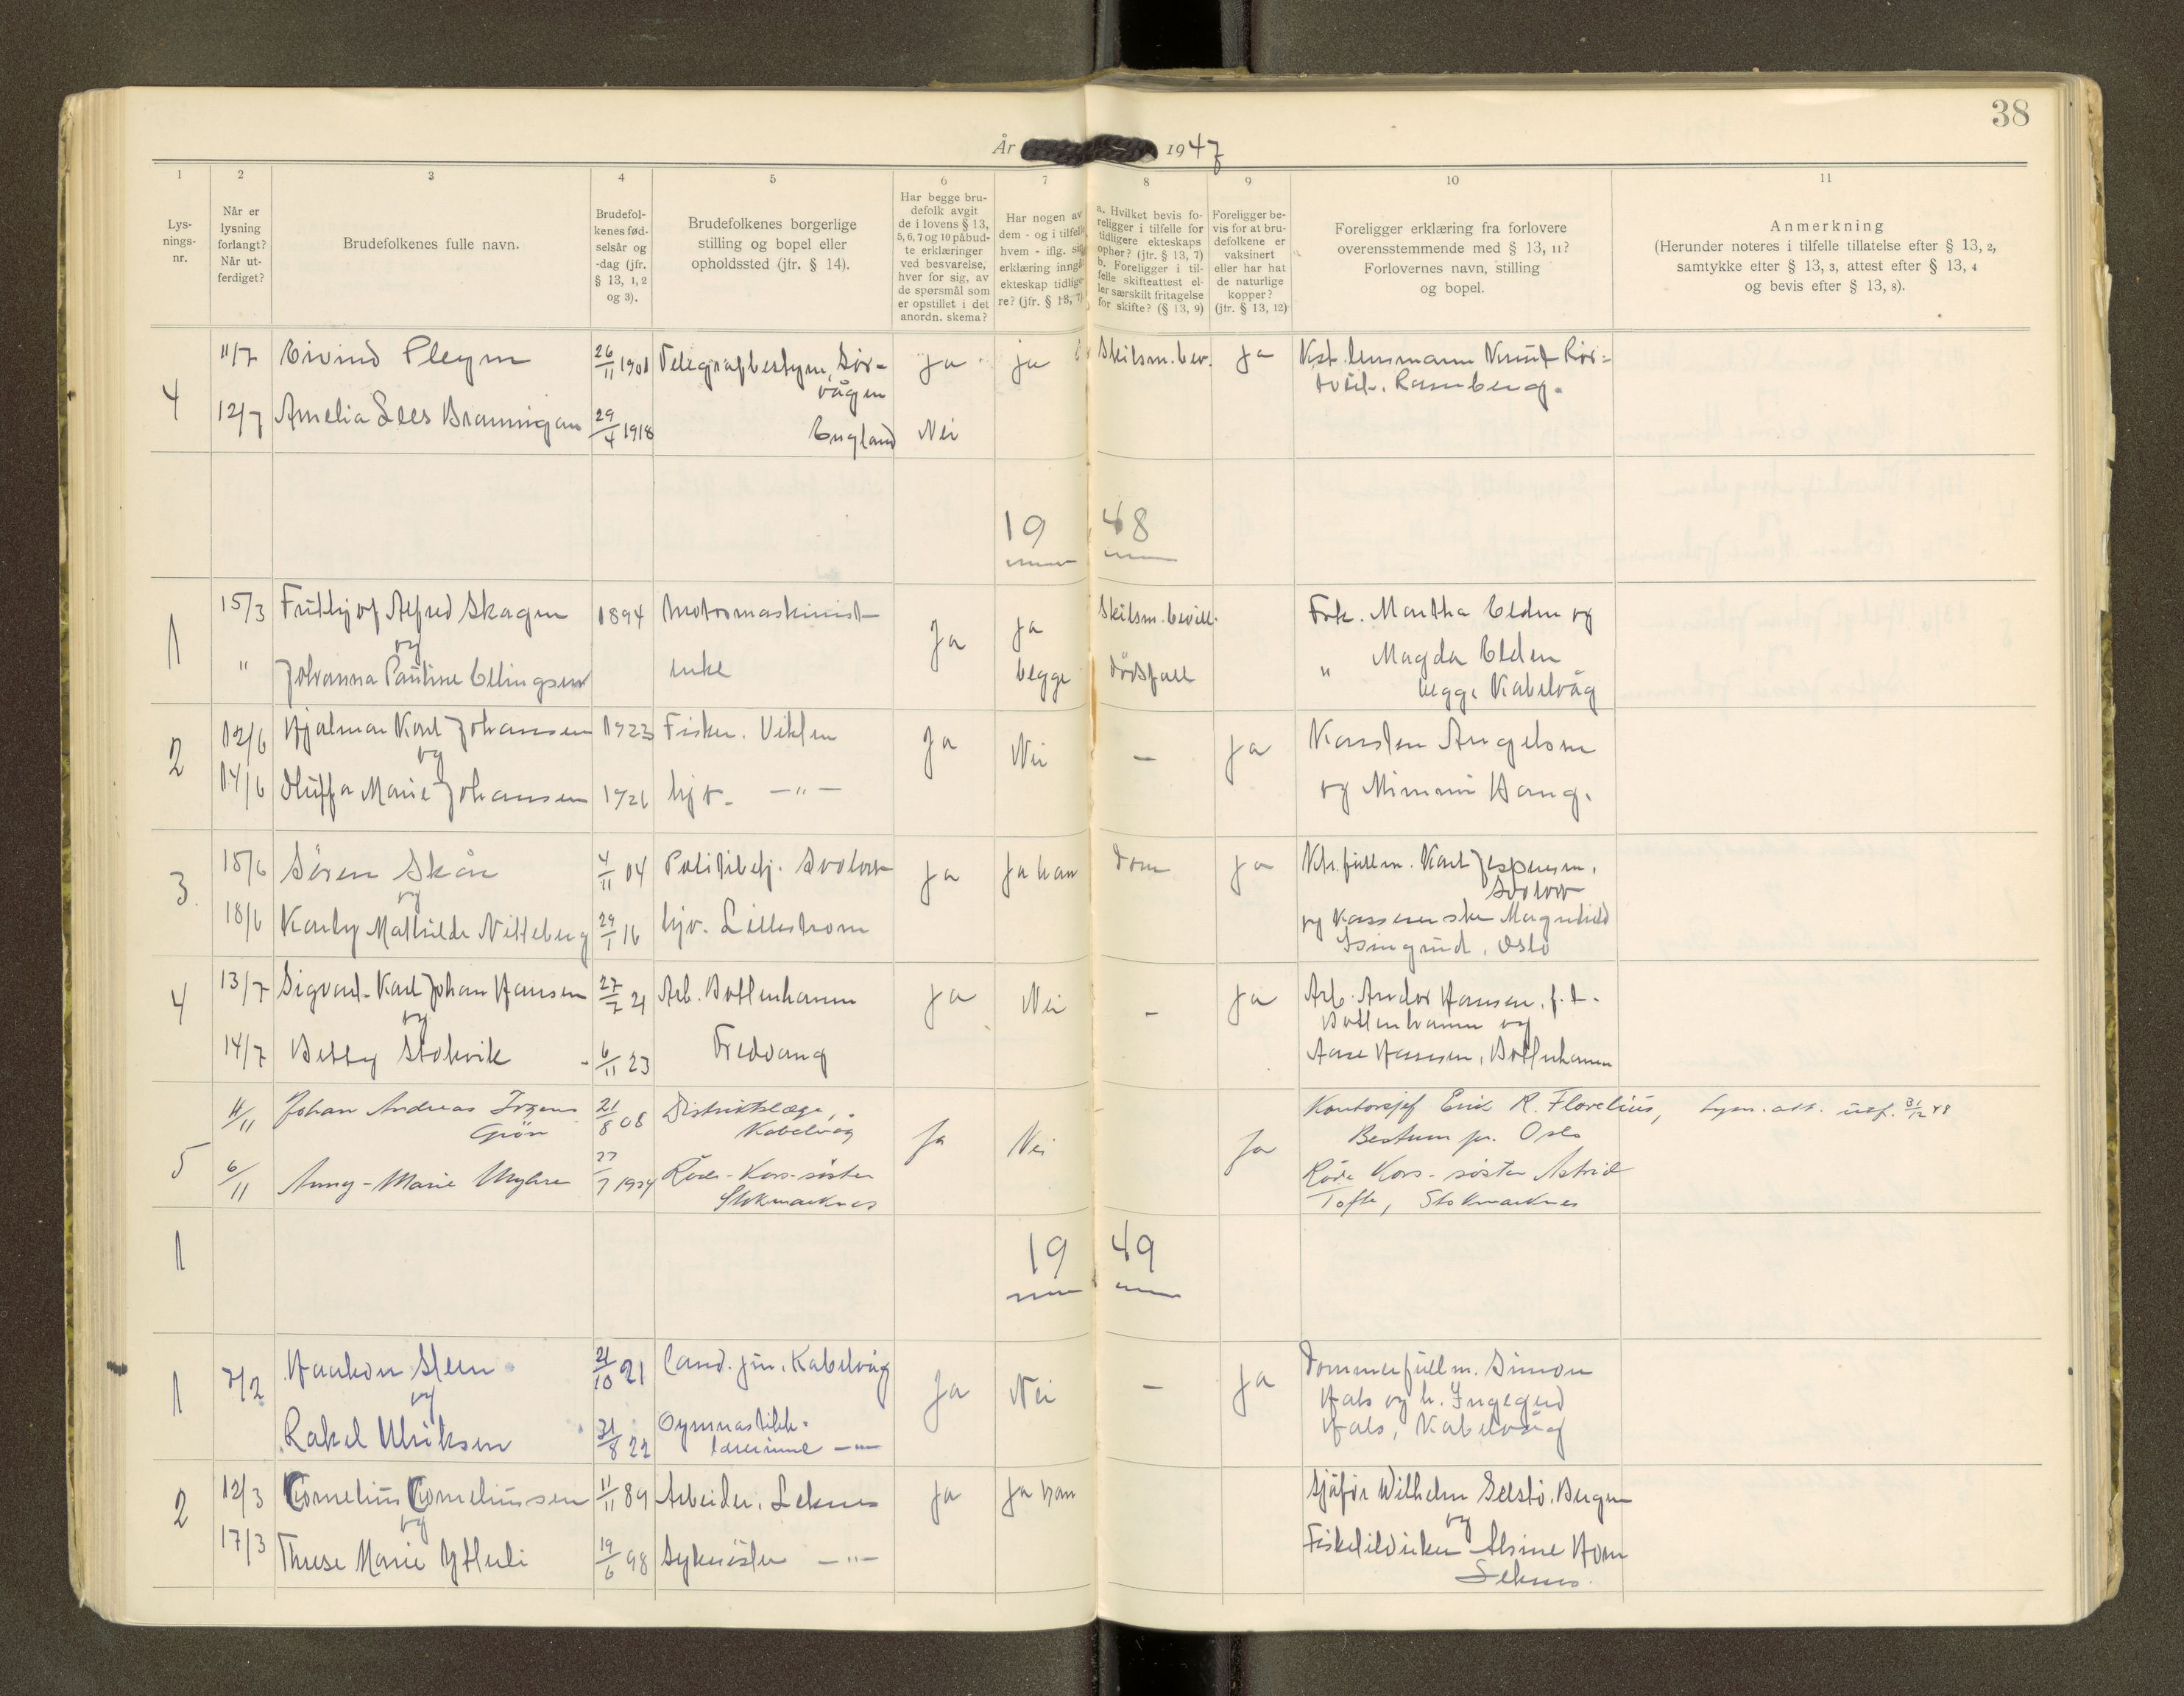 38
År 1947
1
2
3
4
5
6
7
8
9
10
11
Lys-
nings-
nr.
Når er
lysning
forlangt?
Når ut-
ferdiget?
Brudefolkenes fulle navn.
Brudefol-
kenes fød-
selsår og
-dag (jfr.
§ 13, 1, 2
og 3).
Brudefolkenes borgerlige
stilling og bopel eller
opholdssted (jfr. § 14).
Har begge bru-
defolk avgit
de i lovens § 13,
5, 6, 7 og 10 påbud-
te erklæringer
ved besvarelse,
hver for sig, av
de spørsmål som
er opstillet i det
anordn. skema?
Har nogen av
dem - og i tilfelle
hvem - iflg. sin
erklæring inngåt
ekteskap tidlige-
re? (jfr. § 13, 7)
a. Hvilket bevis fo-
religger i tilfelle for
tidligere ekteskaps
ophør? (jfr. § 13, 7)
b. Foreligger i til-
felle skifteattest el-
ler særskilt fritagelse
for skifte? (§ 13, 9)
Foreligger be-
vis for at bru-
defolkene er
vaksinert
eller har hat
de naturlige
kopper?
(jfr. § 13, 12)
Foreligger erklæring fra forlovere
overensstemmende med § 13, 11?
Forlovernes navn, stilling
og bopel.
Anmerkning
(Herunder noteres i tilfelle tillatelse efter § 13, 2,
samtykke efter § 13, 3, attest efter § 13, 4
og bevis efter § 13, 8).
4
11/7 Eivind Pleym 26/11 1901 Telegrafbestyrer, Sør-
vågen
Ja ja Skilsm.bev. Ja Kst. lensmann Knut Rør-
tveit. Ramberg.
12/7 Amelia Lees Brannigan 29/4 1918 England Nei
1948
1
15/3 Fridtjof Alfred Skagen 1894 Motormaskinist
og
" Johanna Pauline Ellingsen enke
Ja Ja
begge
Skilsm.bevill.
dødsfall
Frk. Martha Elden og
" Magda Elden
begge Kabelvåg
2
12/6 Hjalmar Karl Johansen 1923 Fisker.
og
14/6 Marie Johansen 1926 hjv. —"—
Ja Nei — Ja
Karsten Angelsen
og Mimmi Haug.
3
15/6 Søren Skån 4/11 04 Politibetj. Svolvær
og
18/6 Karly Mathilde Nitteberg 29/1 16 hjv. Lillestrøm
Ja Ja han Dom Ja
Ktr.fullm. Karl Jespersen,
Svolvær
og Kassererske Magnhild
Oslo
4
13/7 Sigvart Karl Johan Hansen 27/7 21 Arb. Ballenhamn
og
14/7 Betty Stokvik 6/11 23 Fredvang
Ja Nei — Ja
Arb. Andor Hansen, f.t.
Ballenhamn og
Aase Hansen, Ballenhamn
5
4/11 Johan Andreas Irgens
Grøn
21/8 08 Distriktslæge,
Kabelvåg
6/11 Anny-Marie Myhre 27/7 1924 Røde-Kors-søster
Stokmarknes
Ja Nei Ja
Kontorsjef Erik R. Florelius,
Bestum pr. Oslo
Røde Kors-søster Astrid
Tofte, Stokmarknes
Lysn.att. utf. 31/12 48
1
1949
1
7/2 Haakon Steen 21/10 21 Cand. jur. Kabelvåg
og
Rakel Ulriksen 31/8 22 Gymnastikk-
lærerinne —"—
Ja Nei — Ja
Dommerfullm. Simon
Hals og h. Ingegerd
Hals, Kabelvåg
2
12/3 Cornelius Corneliussen 11/11 89 Arbeider, Leknes
og
17/3 Therese Marie Ytterli 19/6 98 Sykesøster —"—
Ja Ja han
Sjåfør Wilhelm Selstø, Bergen
og
Fisketilvirker Alsine Horn
Leknes.